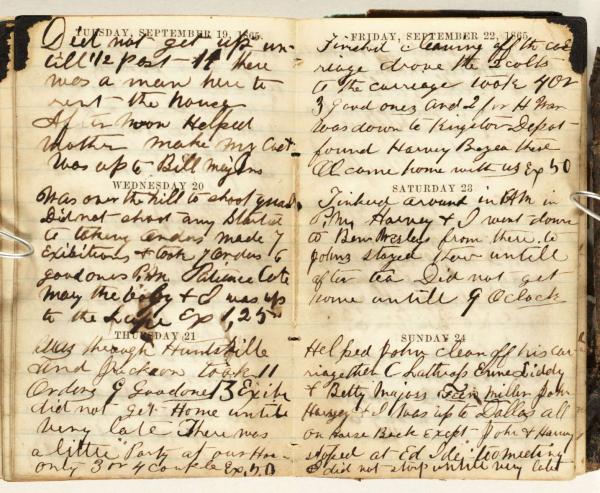 TUESDAY, SEPTEMBER 19, 1865.
Did not get up un-
till 1/2 past 11 there
was a man here to
rent the house
After noon Helped
Mother make my Coat
Was up to Bill Majors
WEDNESDAY 20
Was over the hill to shoot
Did not shoot any Started
to taking orders made 7
Exibitions & took 7 orders 6
good ones P.M.
May the baby & I was up
to the Ex 1,25
THURSDAY 21
Was through Huntsville
and Jackson took 11
Orders 9 Good ones 13 Exibi
did not get Home untill
very late There was
a little Party at our Hou
only 3 or 4 couple Ex, 50
FRIDAY, SEPTEMBER 22, 1865.
Finished cleaning off the car
riage drove the 2 colts
to the carriage took 4 Or
3 Good ones and 2 for H
was down to Kingston Depot
found Harvey there
All came home with us Ex 50
SATURDAY 23
Tinkerd around in A.M. in
P.M. Harvey & I went down
to Ben from there to
Johns stayed untill
after tea Did not get
home untill 9 O Clock
SUNDAY 24
Helped John clean off his car
riage then C Lathrop
& Betty Majors Miller John
Harvey & I Was up to Dallas all
on Horse Back Except John & Harvey
stoped at Ed to meeting
I did not stop untill very late